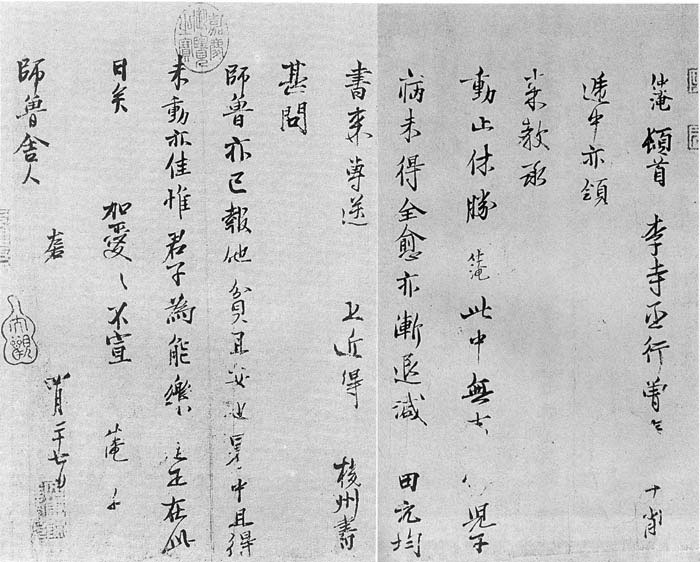 仲淹頓首 李寺丞行曾
遞中亦領
來教承
動止休勝 仲淹此中無 兒子
病未得全愈亦漸退減 田元均
書來專送 上近得 揚州書
甚問
師魯亦已報他貧且安也暑中且得
未動亦佳惟君子為能樂 正在此
日矣 加愛〻不宣 仲淹
師魯舍人
月二十七日
嘉慶御覽之寶